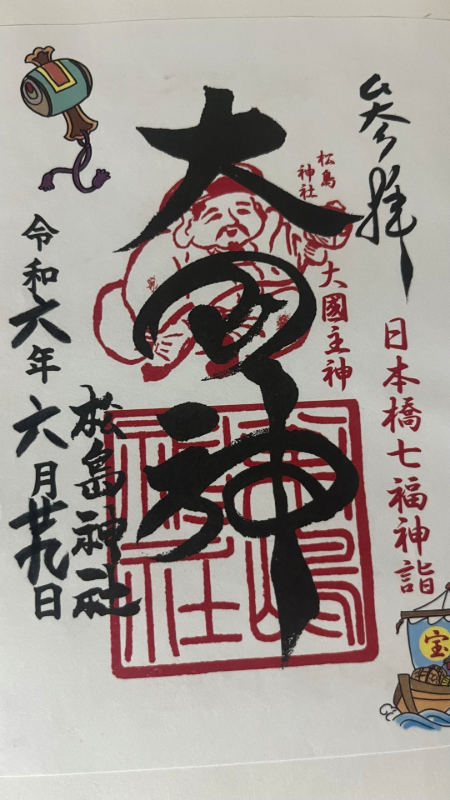 参拝
日本橋七福神詣
宝
松島
神社
大國主神
大国神
松島神社
令和六年六月廿九日